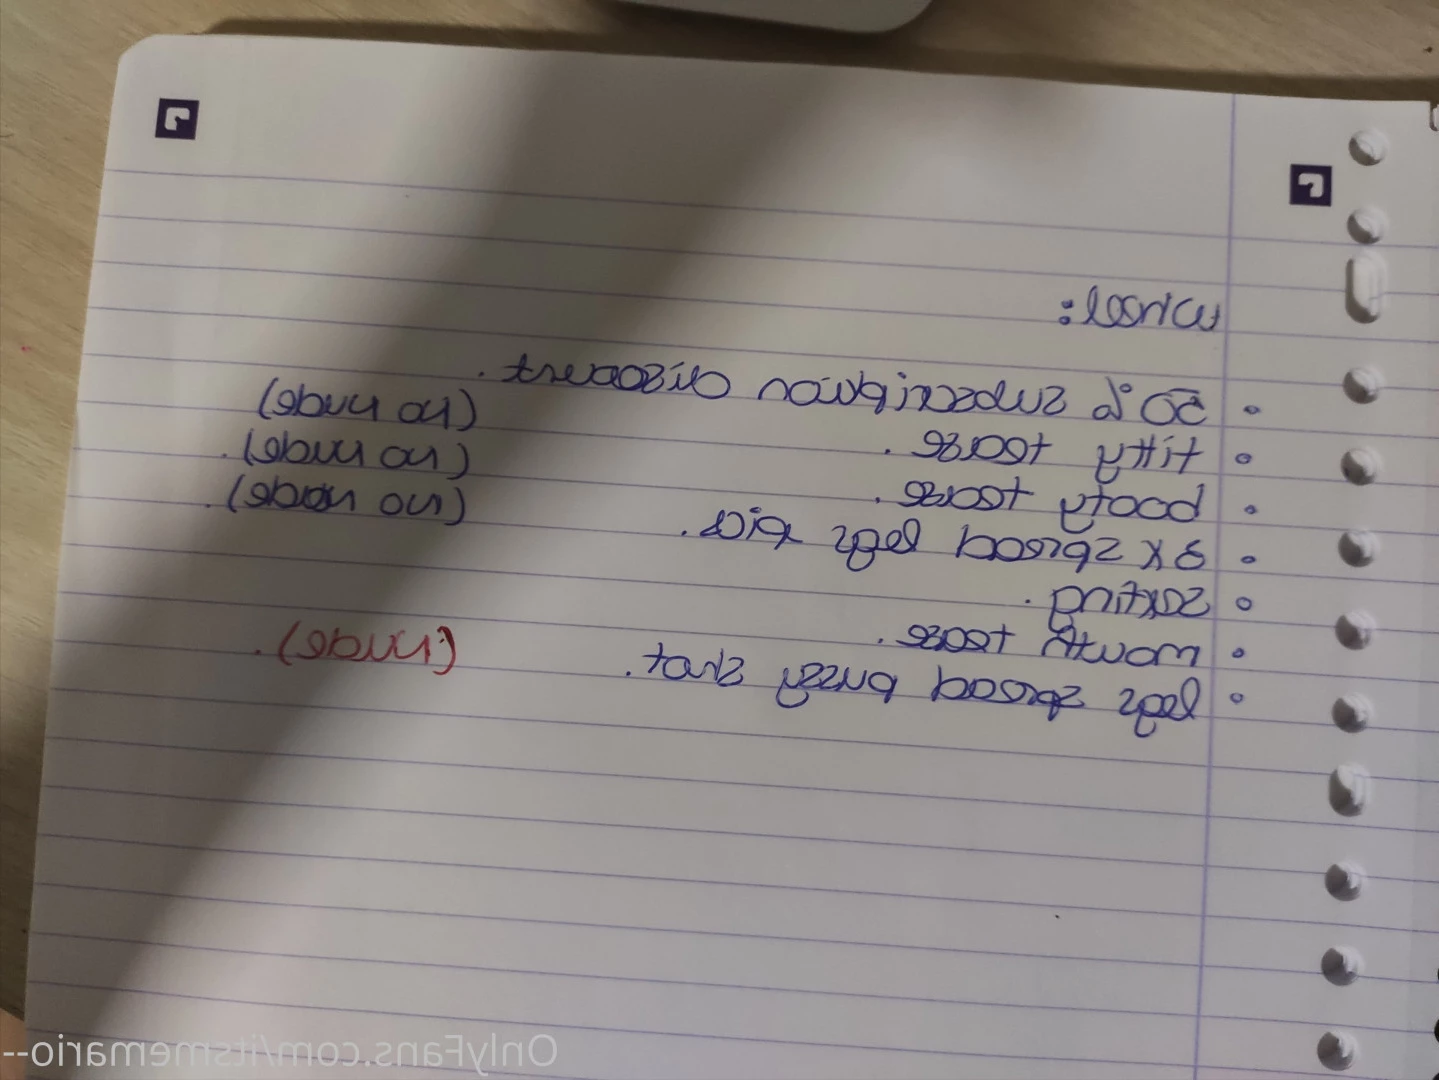 wheel:
• 20% subscription discount.
• titty tease. (no nude)
• booty tease. (no nude).
• 3x spread legs pics. (no nude).
• sexting.
• tease.
• legs spread pussy shot. (nude).
OnlyFans.com/itsmemario--